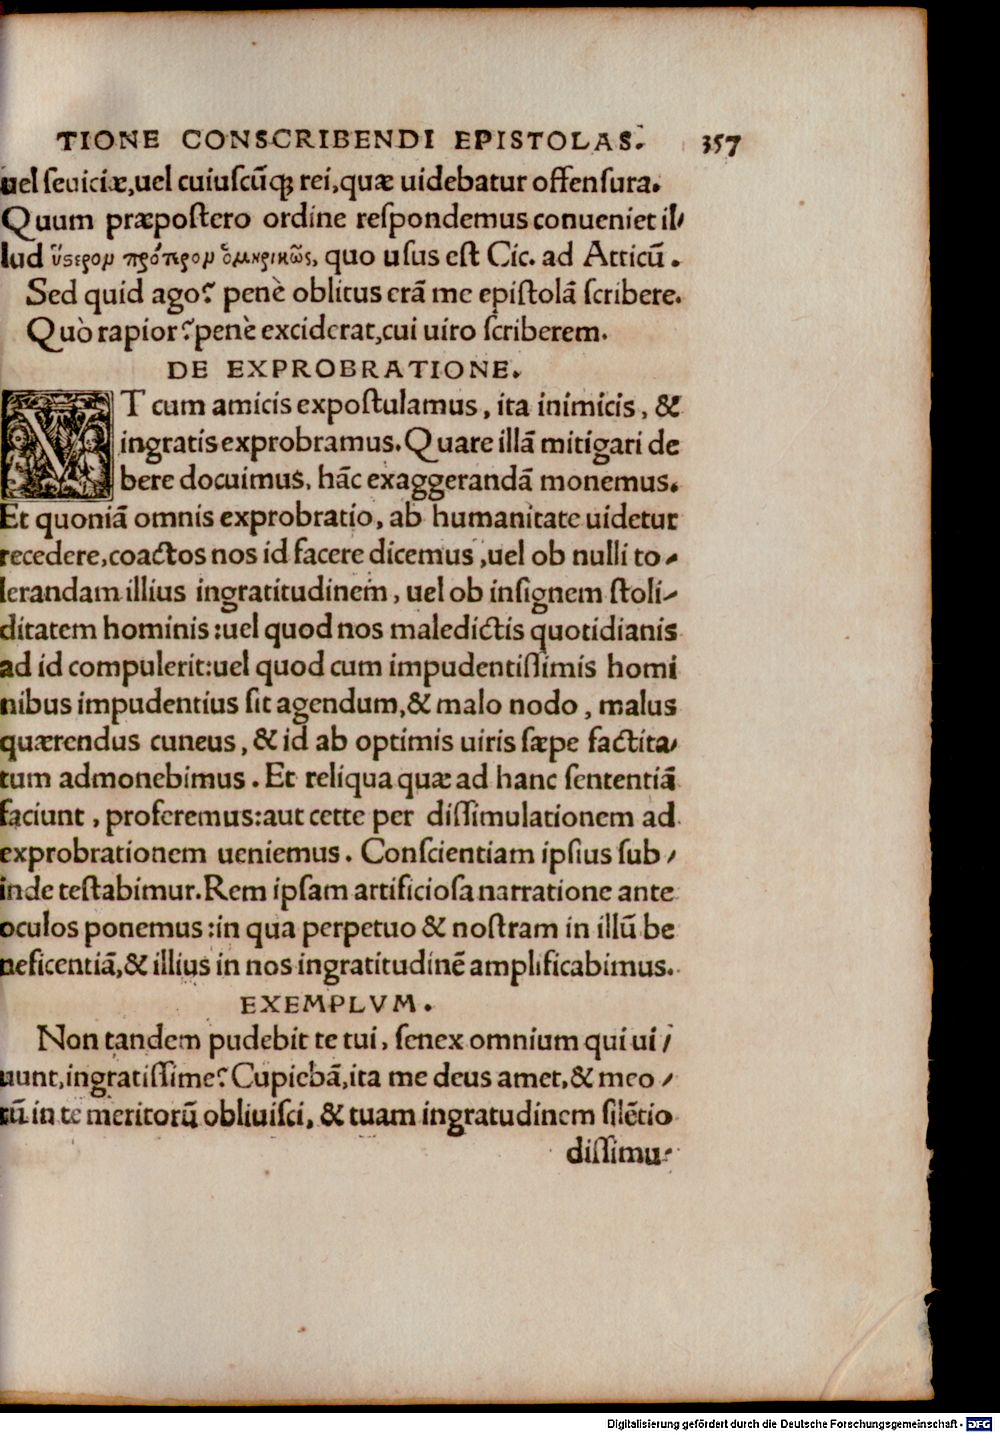 TIONE CONSCRIBENDI EPISTOLAS. 357
uel ſeuiciæ,uel cuiuſcūꝗꝫ rei,quæ uidebatur offenſura.
Quum præpoſtero ordine reſpondemus conueniet il⸗
lud ὕστερον πρότερον ὁμηρικῶς, quo uſus eſt Cic. ad Atticū.
Sed quid ago? penè oblitus erā me epiſtolā ſcribere.
Quò rapior? penè exciderat,cui uiro ſcriberem.
DE EXPROBRATIONE.
VT cum amicis expoſtulamus, ita inimicis, &
ingratis exprobramus. Quare illā mitigari de
bere docuimus, hāc exaggerandā monemus.
Et quoniā omnis exprobratio, ab humanitate uidetur
recedere,coactos nos id facere dicemus,uel ob nulli to⸗
lerandam illius ingratitudinem, uel ob inſignem ſtoli⸗
ditatem hominis:uel quod nos maledictis quotidianis
ad id compulerit:uel quod cum impudentiſſimis homi
nibus impudentius ſit agendum,& malo nodo, malus
quærendus cuneus, & id ab optimis uiris ſæpe factita⸗
tum admonebimus. Et reliqua quæ ad hanc ſententiā
faciunt, proferemus:aut cette per diſſimulationem ad
exprobrationem ueniemus. Conſcientiam ipſius ſub⸗
inde teſtabimur. Rem ipſam artificioſa narratione ante
oculos ponemus:in qua perpetuo & noſtram in illū be
neficentiā,& illius in nos ingratitudinē amplificabimus.
EXEMPLVM.
Non tandem pudebit te tui, ſenex omnium qui ui⸗
uunt,ingratiſſime? Cupiebā,ita me deus amet,& meo⸗
rū in te meritorū obliuiſci, & tuam ingratudinem ſilētio
diſſimu⸗
Digitalisierung gefördert durch die Deutsche Forschungsgemeinschaft - DFG